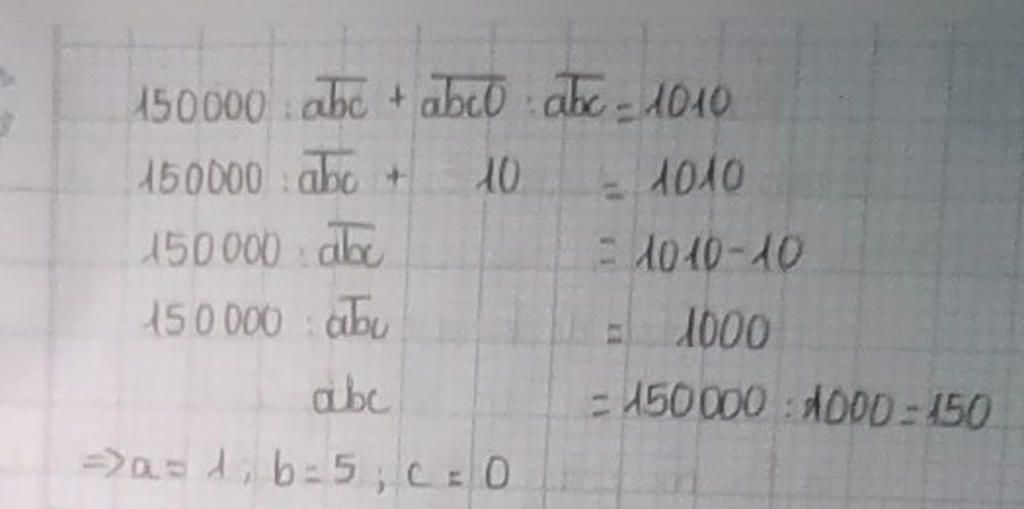 150000 : a̅b̅c̅ + a̅b̅c̅0̅ : a̅b̅c̅ = 1010
150000 : a̅b̅c̅ + 10 = 1010
150000 : a̅b̅c̅ = 1010-10
150000 : a̅b̅c̅ = 1000
abc = 150000 : 1000 = 150
=> a = 1 ; b = 5 ; c = 0